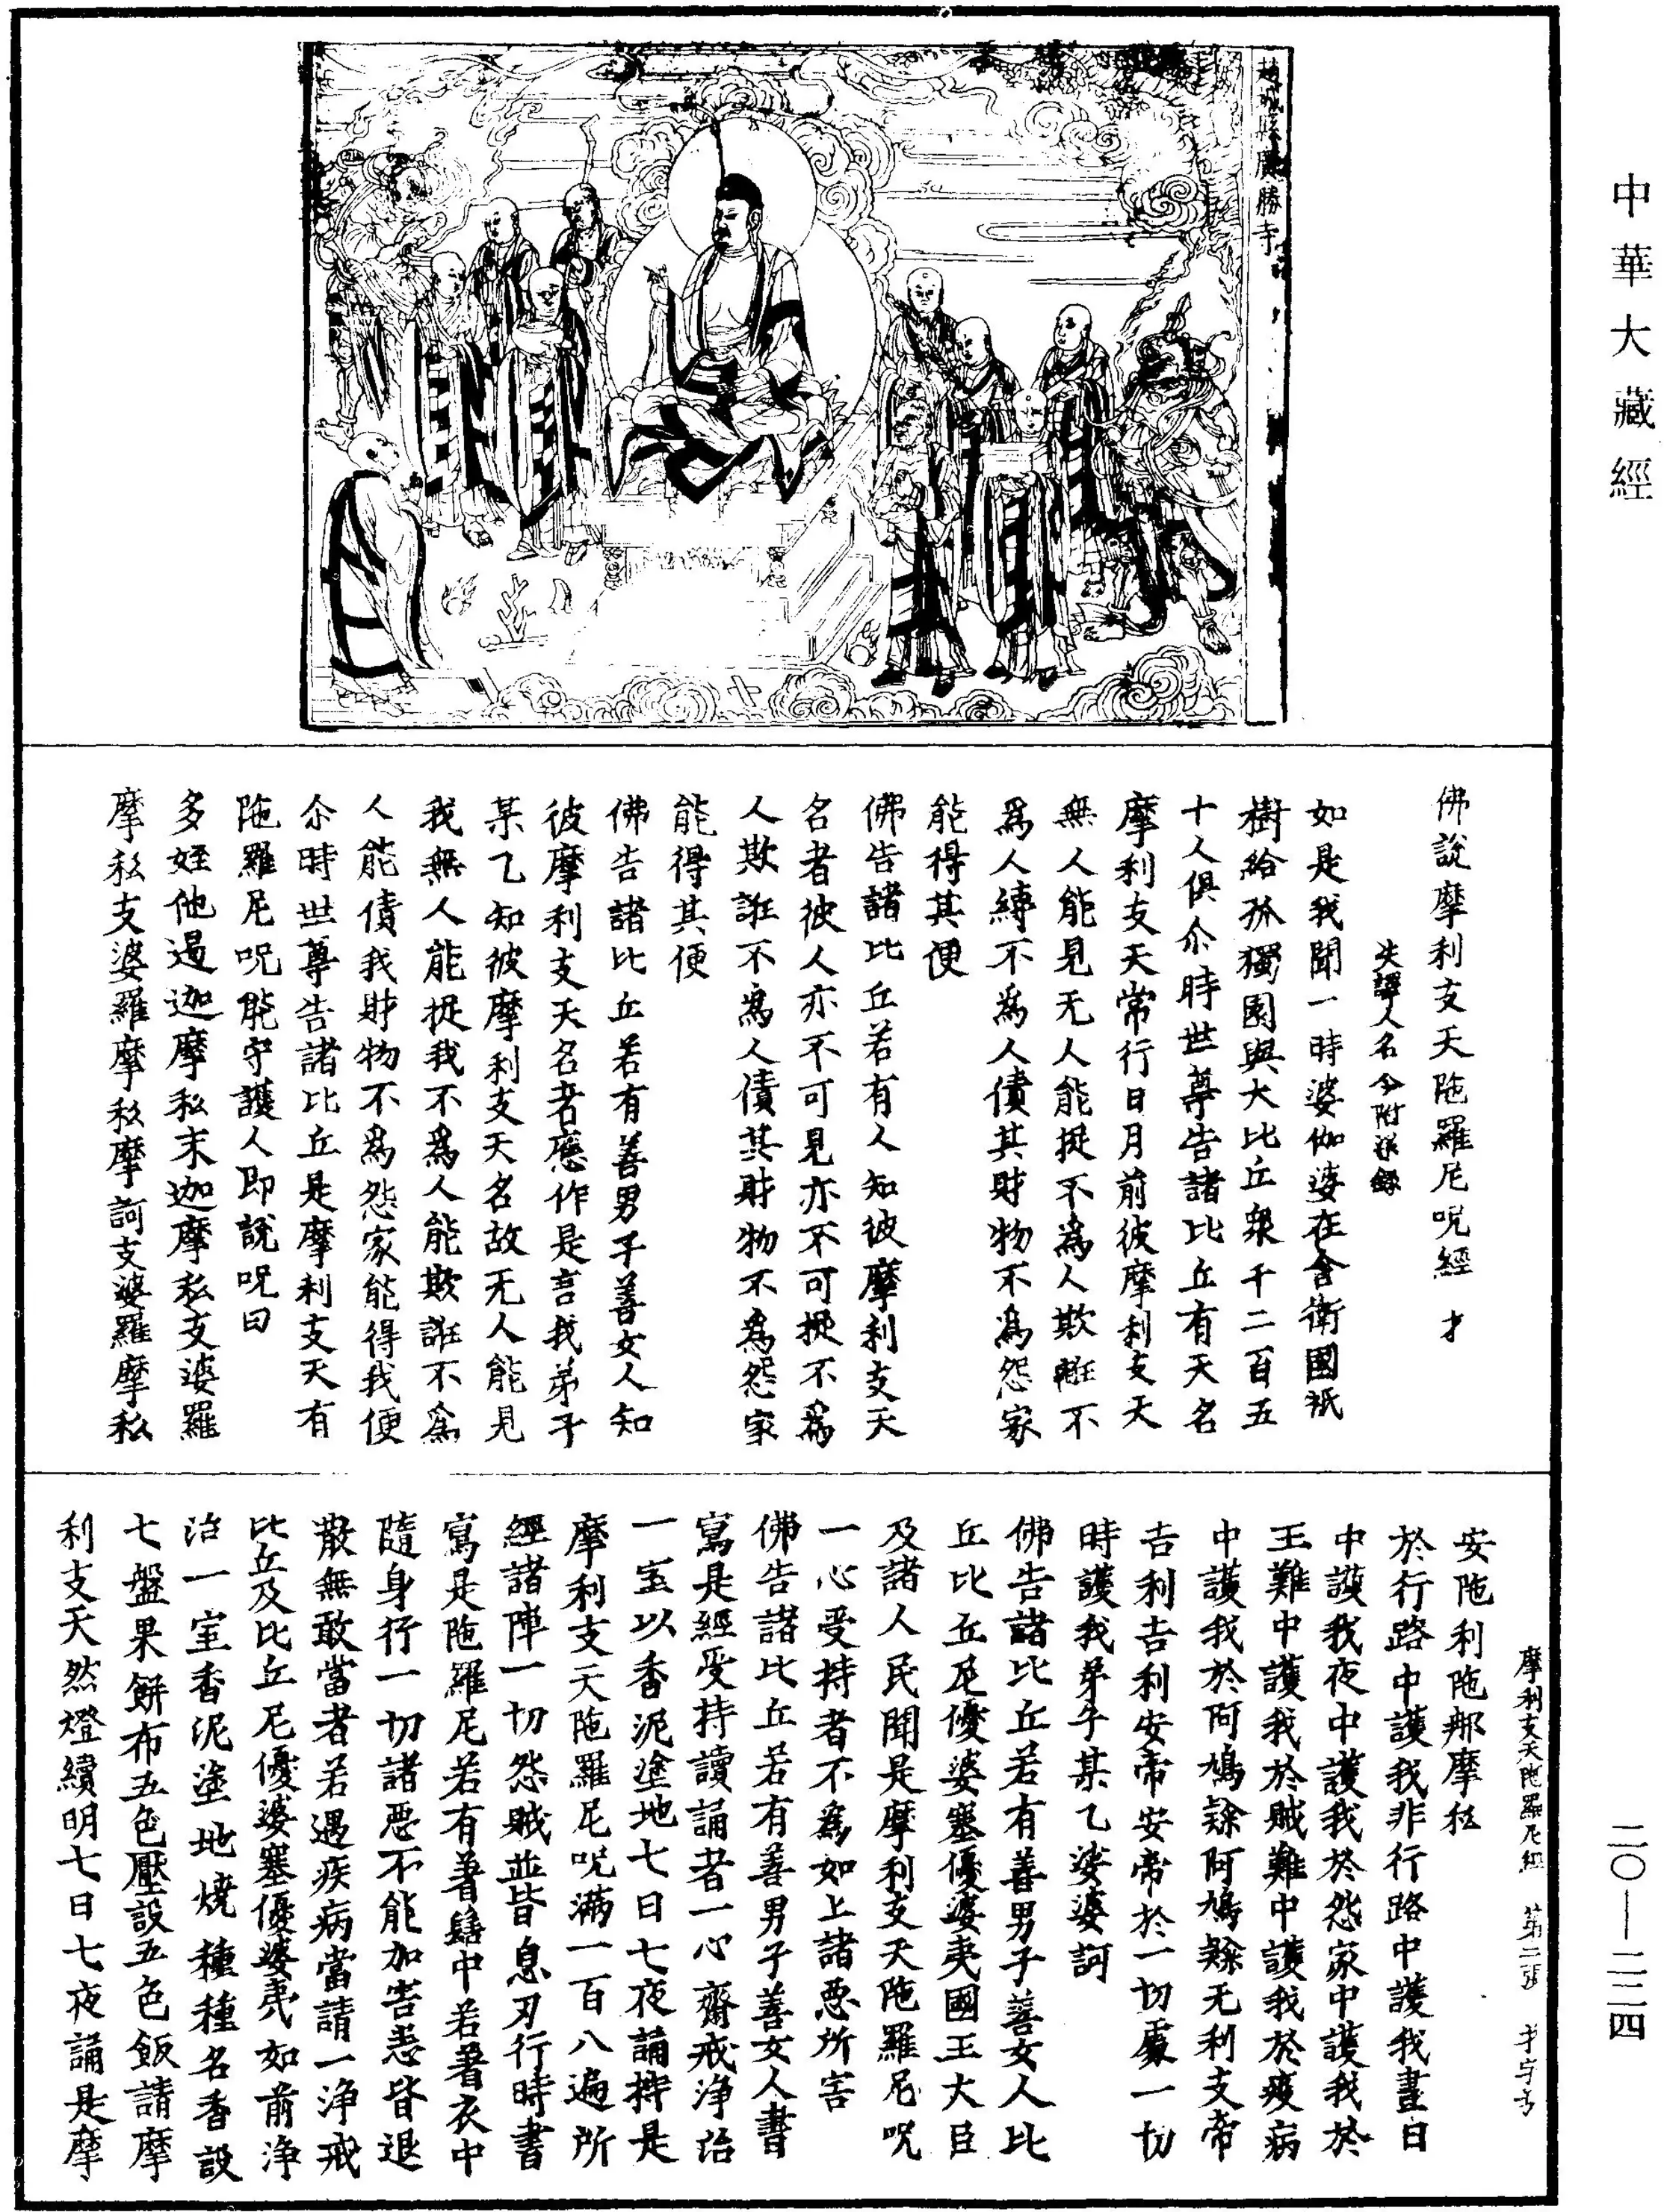 中華大藏經
趙城縣廣勝寺
佛說摩利支天陁羅尼呪經 才
失譯人名今附梁錄
如是我聞一時婆伽婆在舍衛國祇
樹給孤獨園與大比丘衆千二百五
十人俱尒時世尊告諸比丘有天名
摩利支天常行日月前彼摩利支天
無人能見无人能捉不為人欺誑不
爲人縛不爲人債其財物不爲怨家
能得其便
佛告諸比丘若有人知彼摩利支天
名者彼人亦不可見亦不可捉不爲
人欺誑不爲人債其財物不爲怨家
能得其便
佛告諸比丘若有善男子善女人知
彼摩利支天名者應作是言我弟子
某乙知彼摩利支天名故无人能見
我無人能捉我不爲人能欺誑不爲
人能債我財物不爲怨家能得我便
尒時世尊告諸比丘是摩利支天有
陁羅尼呪能守護人即說呪曰
多姪他遏迦摩私末迦摩私支婆羅
摩私支婆羅摩私摩訶支婆羅摩私
摩利支天陁羅尼經 第二張 才字号
安陁利陁那摩私
於行路中護我非行路中護我晝日
中護我夜中護我於怨家中護我於
王難中護我於賊難中護我於疫病
中護我於阿鳩隸阿鳩隸无利支帝
吉利吉利安帝安帝於一切處一切
時護我弟子某乙娑婆訶
佛告諸比丘若有善男子善女人比
丘比丘尼優婆塞優婆夷國王大臣
及諸人民聞是摩利支天陁羅尼呪
一心受持者不為如上諸惡所害
佛告諸比丘若有善男子善女人書
寫是經受持讀誦者一心齋戒淨治
一室以香泥塗地七日七夜誦持是
摩利支天陁羅尼呪滿一百八遍所
經諸陣一切怨賊並皆息刃行時書
寫是陁羅尼若有著髻中若著衣中
隨身行一切諸惡不能加害悉皆退
散無敢當者若遇疾病當請一淨戒
比丘及比丘尼優婆塞優婆夷如前淨
治一室香泥塗地燒種種名香設
七盤果餅布五色壓設五色飯請摩
利支天然燈續明七日七夜誦是摩
二〇—二二四